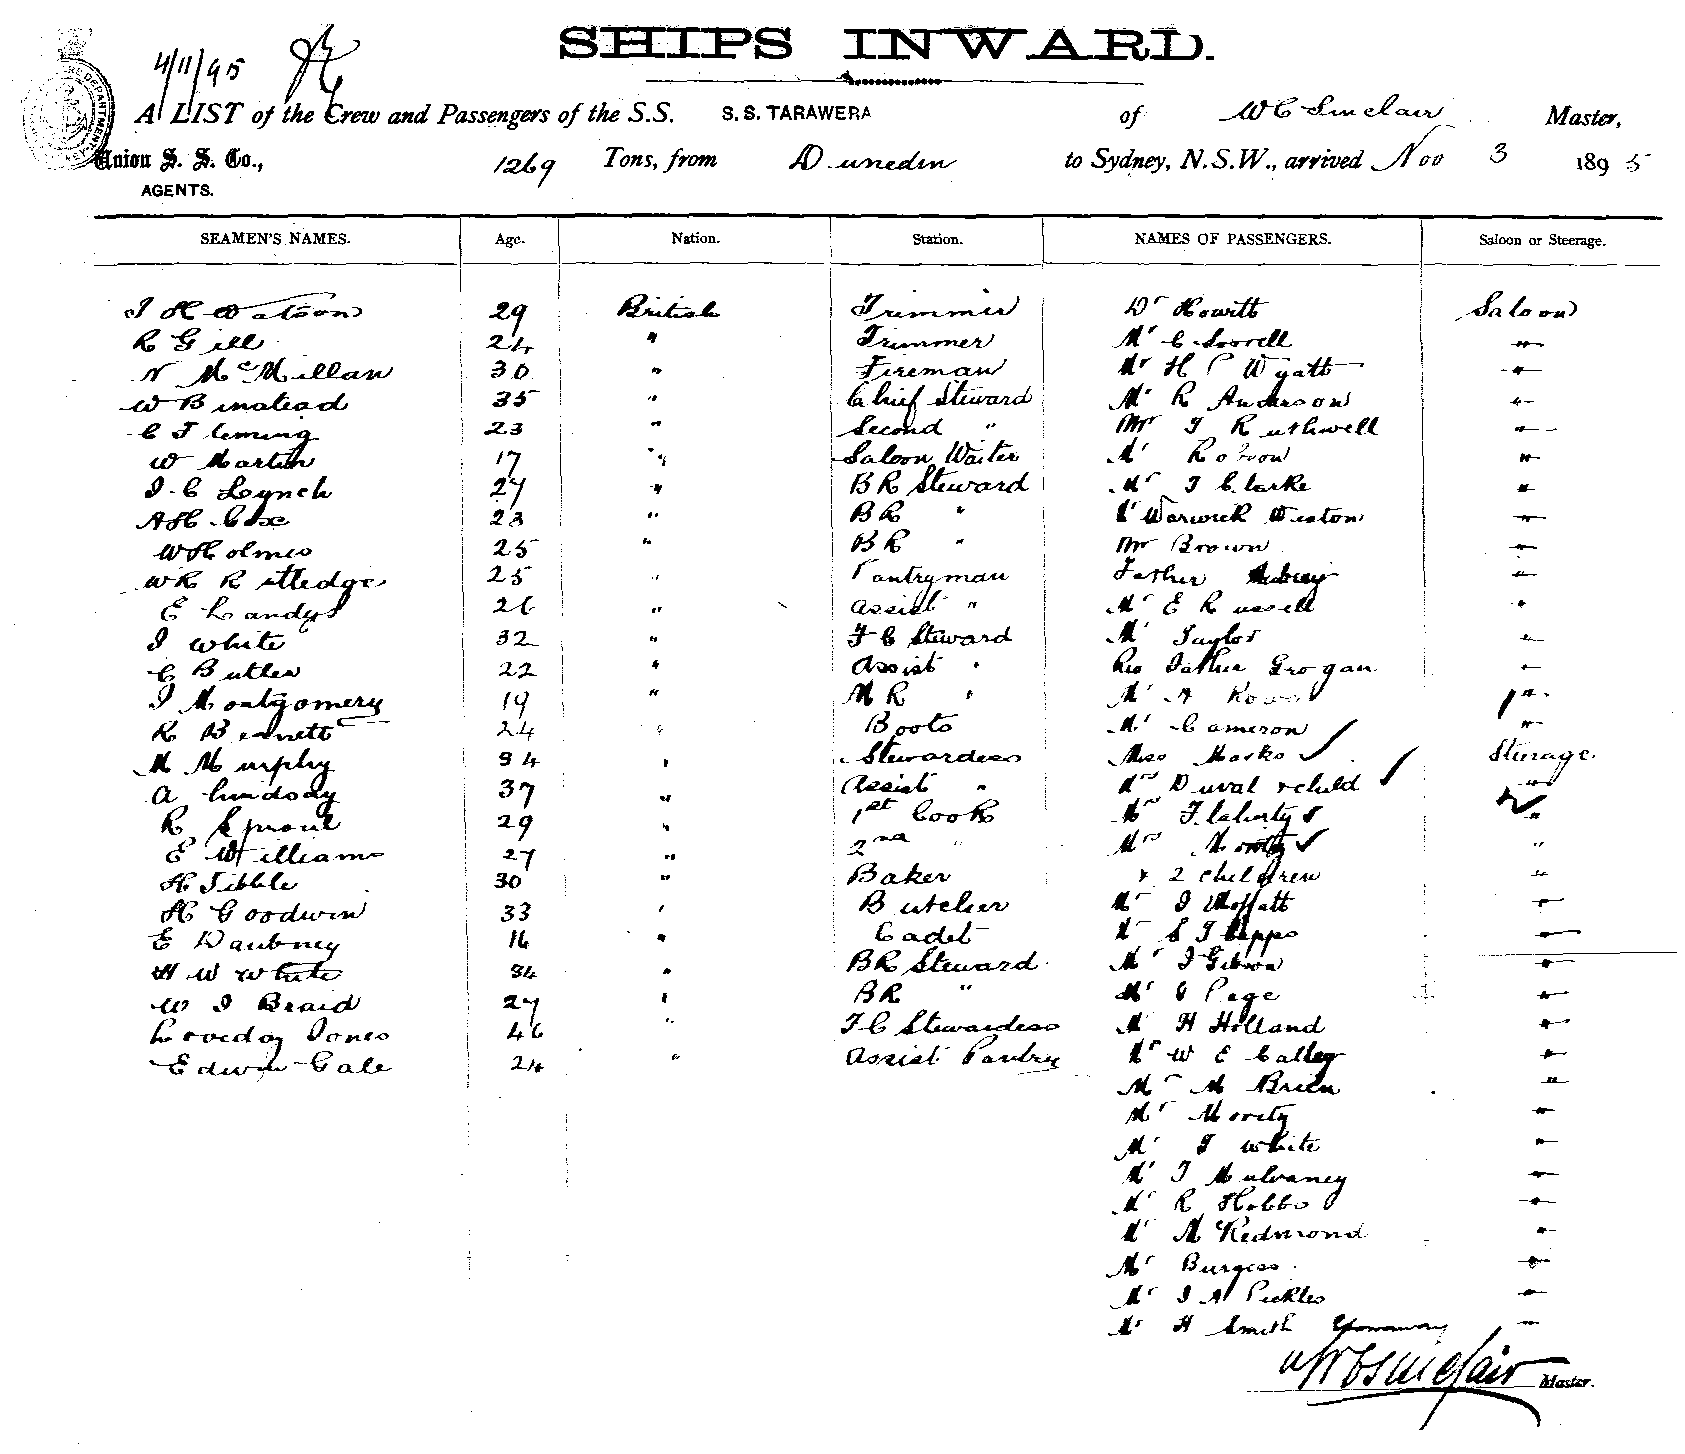 SHIPS INWARD.
4/11/95
A LIST of the Crew and Passengers of the S.S. S. S. TARAWERA of W C Sinclair Master,
Union S. S. Co., 1269 Tons, from Dunedin to Sydney, N.S.W., arrived Nov 3 1895
AGENTS.
SEAMEN'S NAMES. Age. Nation. Station. NAMES OF PASSENGERS. Saloon or Steerage.
J H Watson 29 British Trimmer Dr Howitt Saloon
R Gill 24 " Trimmer Mr C Sorrell "
N McMillan 30 " Fireman Mr H C Wyatt "
W Binstead 35 " Chief Steward Mr R Anderson "
C Fleming 23 " Second " Mr J Ruthwell "
W Martin 17 " Saloon Waiter Mr Robson "
J C Lynch 27 " BR Steward Mr J Clarke "
A H Cox 23 " BR " Mr Warwick Weston "
W Holmes 25 " BR " Mr Brown "
W R Rutledge 25 " Pantryman Father Aubrey "
E Landys 26 " Assist " Mr E Russell "
J White 32 " F C Steward Mr Taylor "
C Butler 22 " Assist " Rev Father Grogan "
J Montgomery 19 " M R " Mr A "
R Bennett 24 " Boots Mr Cameron "
M Murphy 34 " Stewardess Miss Marks Steerage
A Lindsay 37 " Assist " Mrs Duval & child "
R Sproul 29 " 1st Cook Mrs Flaherty "
E Williams 27 " 2nd " Mrs "
H Tibble 30 " Baker & 2 children "
H Goodwin 33 " Butcher Mr J Moffatt "
E Daubney 16 " Cadet Mr S J "
H W White 34 " BR Steward Mr J Gibson "
W J Braid 27 " BR " Mr J Page "
Loveday Jones 46 " F C Stewardess Mr H Holland "
Edwin Gale 24 " Assist Pantry Mr W E Calley "
Mr M Brien "
Mr Mority "
Mr J White "
Mr J Mulvaney "
Mr R Hobbs "
Mr M Redmond "
Mr Burgess "
Mr J A Pickles "
Mr H Smith "
W C Sinclair Master.